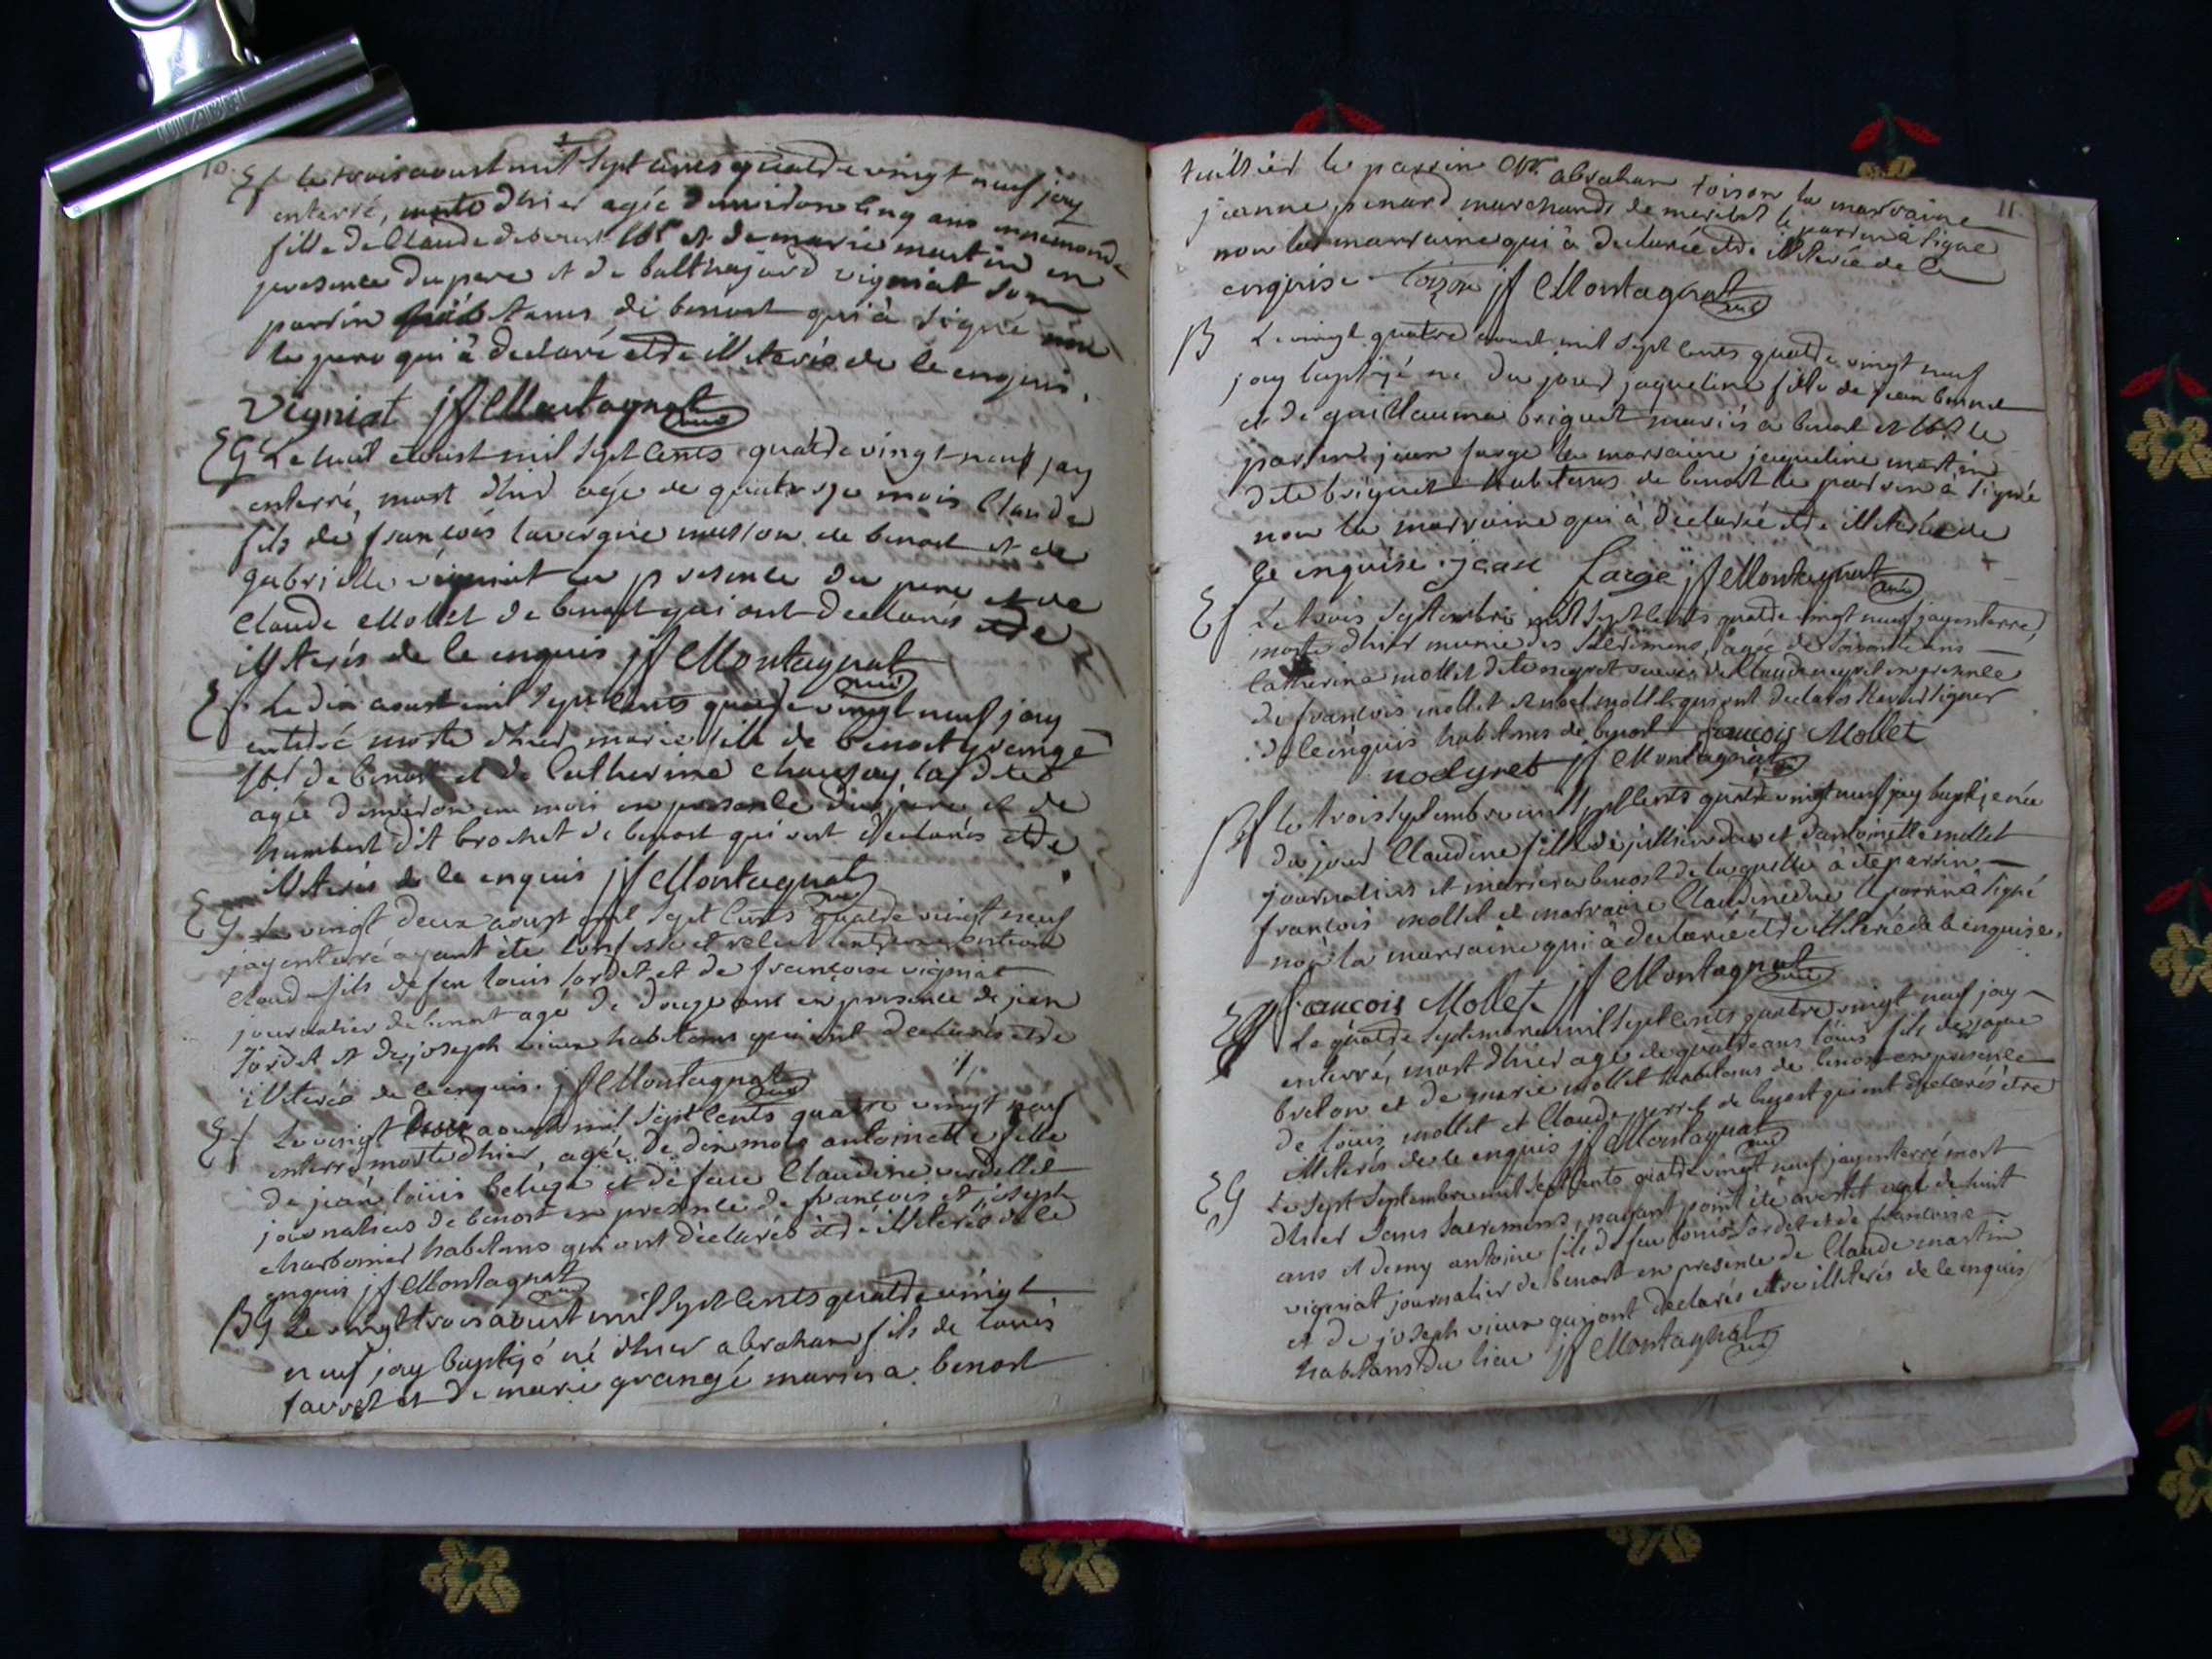 10.
Ef le trois aoust mil sept cents quatre vingt neuf jay
enterré, morte d'hier agée d'environ cinq ans ennemonde
fille de Claude de benost lbr et de marie martin en
presence du pere et de balthazard vigniat son
parrin habitans de benost qui à signé non
le pere qui à declaré etre illiteré de ce enquis.
Vigniat jf Montagnat curé
EG Le huit aoust mil sept cents quatre vingt neuf jay
enterré, mort d'hier agé de quatorze mois Claude
fils de françois lavergne masson de benost et de
gabrielle vigniat en presence du pere et de
Claude Mollet de benost qui ont declarés etre
illiterés de ce enquis jf Montagnat curé
Ef Le dix aoust mil sept cents quatre vingt neuf jay
enterré morte d'hier marie fille de benost grangé
lbr de benost et de Catherine
agée d'environ un mois en presence du pere et de
humbert dit brochet de benost qui ont declarés etre
illiterés de ce enquis jf Montagnat curé
EG Le vingt deux aoust mil sept cents quatre vingt neuf
jay enterré ayant ète confessé et
Claude fils de feu louis sordet et de françoise vigniat
journalier de benost agé de douze ans en presence de jean
sordet et de joseph vieux habitans qui ont declarés etre
illiterés de ce enquis. jf Montagnat curé
Ef Le vingt deux aoust mil sept cents quatre vingt neuf
enterré morte d'hier, agée de dix mois antoinette fille
de jean louis et de feue Claudine verdellet
journaliers de benost en presence de françois et joseph
charbonier habitans qui ont dèclarés ètre illiterés de ce
enquis jf Montagnat curé
BG Le vingt trois aoust mil sept cents quatre vingt
neuf jay baptizé né d'hier abraham fils de louis
favret et de marie grangé mariés a benost
11.
le parrin Sr abraham toison la marraine
jeanne penard marchands de le parrin à signé
non la marraine qui à declarée etre illiterée de ce
enquise Toison jf Montagnat curé
B Le vingt quatre aoust mil sept cents quatre vingt neuf
jay baptizé née du jour jaqueline fille de jean benost
et de guillauma briguet mariés a benost et lbr le
parrin jean farge la marraine jaqueline martin
dite briguet habitans de benost le parrin à signé
non la marraine qui à declarée etre illiterée de
ce enquise. jean farge jf Montagnat curé
Ef Le trois septembre mil sept cents quatre vingt neuf jay enterré,
morte d'hier munie des sacremens, agée de soixante ans
Catherine mollet dite neyret veuve de Claude neyret en presence
de françois mollet et noel mollet qui ont declarés
de ce enquis habitans de benost françois Mollet
jf Montagnat curé
Bf Le trois septembre mil sept cents quatre vingt neuf jay baptizé née
du jour Claudine fille de et d'antoinette mollet
journaliers et mariés a benost de laquelle à ète parrin
françois mollet et marraine Claudine le parrin à signé
non la marraine qui à declarée etre illiterée de ce enquise.
françois Mollet jf Montagnat curé
EG Le quatre septembre mil sept cents quatre vingt neuf jay
enterré, mort d'hier agé de quatre ans louis fils de jaque
breton et de marie mollet habitans de benost en presence
de louis mollet et Claude perret de benost qui ont declarés ètre
illiterés de ce enquis jf Montagnat curé
EG Le sept septembre mil sept cents quatre vingt neuf jay enterré mort
d'hier sans sacremens, nayant point ète averti agé de huit
ans et demy antoine fils de feu louis sordet et de francoise
vigniat journalier de benost en presence de Claude martin
et de joseph vieux qui ont declarés etre illiterés de ce enquis
habitans du lieu jf Montagnat curé